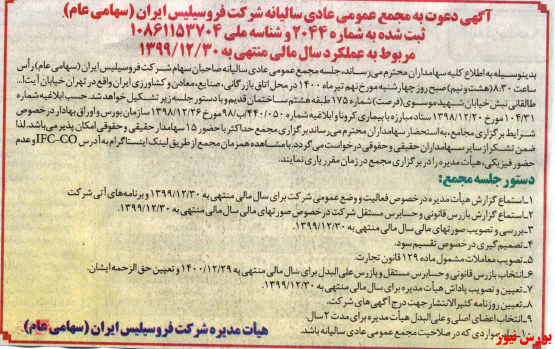 آگهی دعوت به مجمع عمومی عادی سالیانه شرکت فروسیلیس ایران (سهامی عام)
ثبت شده به شماره ۲۰۴۴ و شناسه ملی ۱۰۸۶۱۱۵۳۷۰۴
مربوط به عملکرد سال مالی منتهی به ۱۳۹۹/۱۲/۳۰
بدینوسیله به اطلاع کلیه سهامداران محترم می‌رساند، جلسه مجمع عمومی عادی سالیانه صاحبان سهام شرکت فروسیلیس ایران (سهامی عام) رأس
ساعت ۸:۳۰ (هشت و نیم) صبح روز چهارشنبه مورخ نهم تیرماه ۱۴۰۰ در محل اتاق بازرگانی، صنایع، معادن و کشاورزی ایران واقع در تهران خیابان آیت‌ا...
طالقانی نبش خیابان شهید موسوی (فرصت) شماره ۱۷۵ طبقه هشتم ساختمان قدیم و با دستور جلسه زیر تشکیل خواهد شد. حسب ابلاغیه شماره
۱۰۴/۳۱ مورخ ۱۳۹۸/۱۲/۲۰ ستاد مبارزه با بیماری کرونا و ابلاغیه شماره ۴۴۰/۰۵۰/ب/۹۸ مورخ ۱۳۹۸/۱۲/۲۶ سازمان بورس و اوراق بهادار در خصوص
شرایط برگزاری مجامع، به استحضار سهامداران محترم می‌رساند برگزاری مجمع حداکثر با حضور ۱۵ سهامدار حقیقی و حقوقی امکان پذیر می‌باشد. لذا
ضمن تشکر از سایر سهامداران حقیقی و حقوقی درخواست می‌گردد، با مشاهده همزمان مجمع از طریق لینک اینستاگرام به آدرس IFC-CO و عدم
حضور فیزیکی، هیأت مدیره را در برگزاری مجمع در زمان مقرر یاری نمایند.
دستور جلسه مجمع:
۱ـ استماع گزارش هیأت مدیره در خصوص فعالیت و وضع عمومی شرکت برای سال مالی منتهی به ۱۳۹۹/۱۲/۳۰ و برنامه‌های آتی شرکت
۲ـ استماع گزارش بازرس قانونی و حسابرس مستقل شرکت در خصوص صورتهای مالی سال مالی منتهی به ۱۳۹۹/۱۲/۳۰.
۳ـ بررسی و تصویب صورتهای مالی سال مالی منتهی به ۱۳۹۹/۱۲/۳۰.
۴ـ تصمیم گیری در خصوص تقسیم سود.
۵ـ تصویب معاملات مشمول ماده ۱۲۹ قانون تجارت.
۶ـ انتخاب بازرس قانونی و حسابرس مستقل و بازرس علی البدل برای سال مالی منتهی به ۱۴۰۰/۱۲/۲۹ و تعیین حق الزحمه ایشان.
۷ـ تعیین و تصویب پاداش هیأت مدیره برای سال مالی منتهی به ۱۳۹۹/۱۲/۳۰.
۸ـ تعیین روزنامه کثیر الانتشار جهت درج آگهی‌های شرکت.
۹ـ انتخاب اعضای اصلی و علی البدل هیأت مدیره برای مدت ۲ سال.
۱۰ـ سایر مواردی که در صلاحیت مجمع عمومی عادی سالیانه باشد.
هیأت مدیره شرکت فروسیلیس ایران (سهامی عام)
بورس نیوز